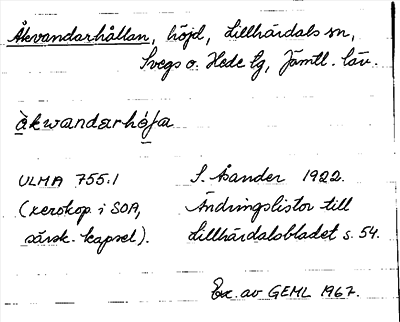 Åkvandarhållan, höjd, Lillhärdals sn,
Svegs o. Hede tg, Jämtl. län.
àkwandarhǿɟa
ULMA 755:1 S. Åsander 1922.
(xerokop. i SOA, Ändringslistor till
särsk. kapsel). Lillhärdalsbladet s. 54.
Ex. av GEML 1967.